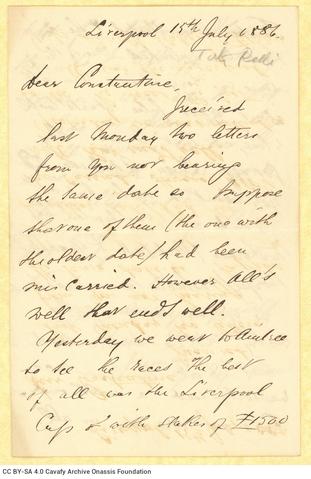 Liverpool 15th July 1886.
Toto Ralli
Dear Constantine,
I received
last Monday two letters
from you not bearing
the same date so I suppose
that one of them (the one with
the oldest date) had been
miscarried. However All's
well that ends well.
Yesterday we went to Aintree
to see the races The best
of all was the Liverpool
Cup of with stakes of £1500
CC BY-SA 4.0 Cavafy Archive Onassis Foundation